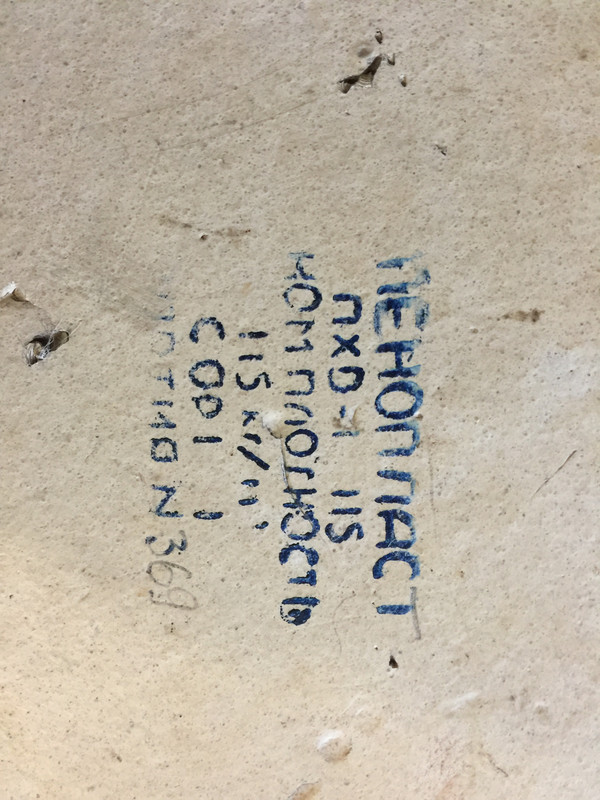 ПЕНОПЛАСТ
ПХВ-1 115
НОМ ПЛОТНОСТЬ
115 кг/м³
СОРТ 1
ПАРТИЯ N 369